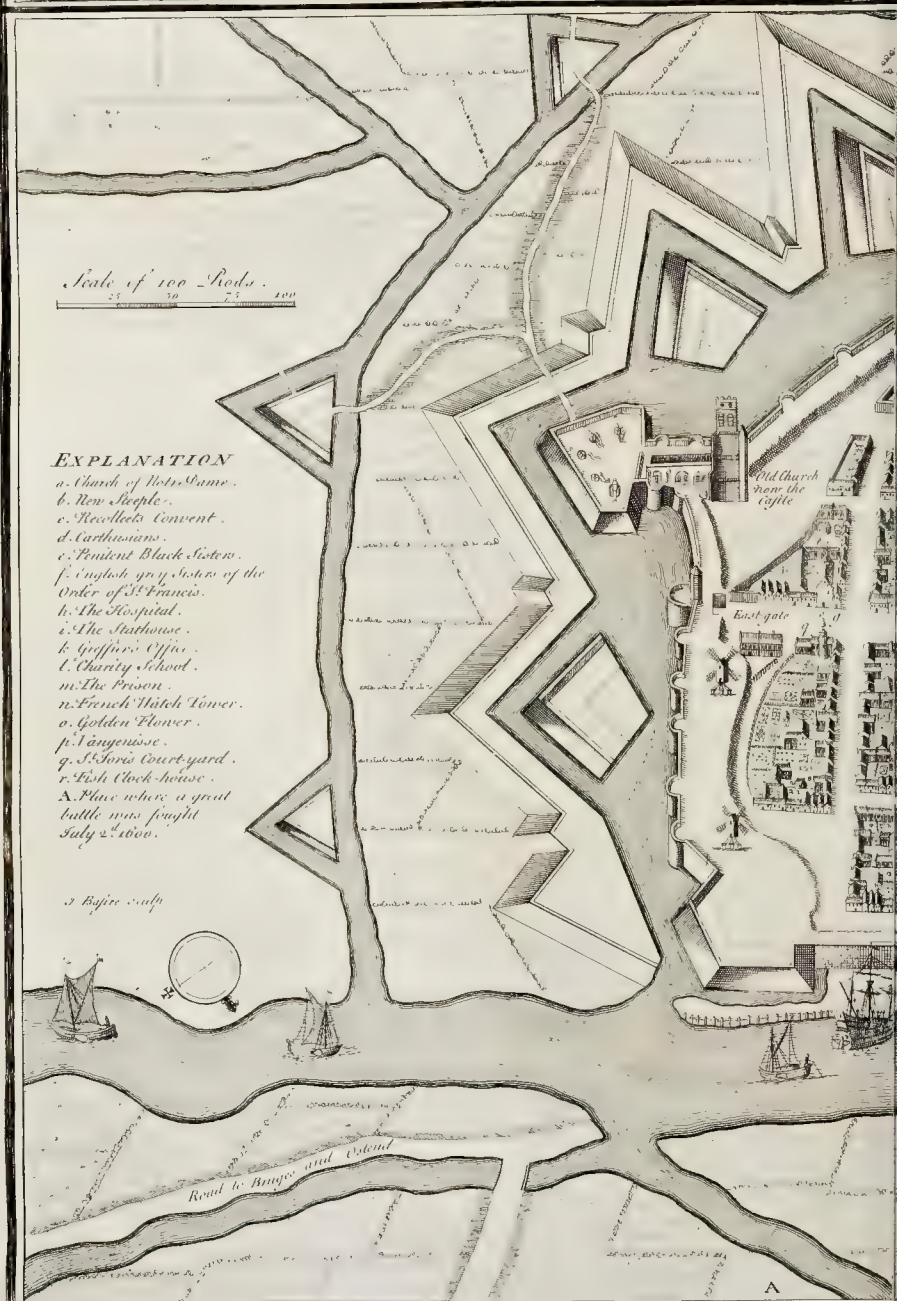 Scale of 100 Rods.
25 50 75 100
EXPLANATION
a. Church of Notr. Dame.
b. New Steeple.
c. Recollects Convent.
d. Carthusians.
e. Penitent Black Sisters.
f. English grey Sisters of the
Order of St. Francis.
h. The Hospital.
i. The Stathouse.
k Greffiers Office.
l. Charity School.
m. The Prison.
n. French Watch Tower.
o. Golden Flower.
p. Vangenisse.
q. St. Joris Court-yard.
r. Fish Clock-house.
A. Place where a great
battle was fought
July 2d. 1600.
J Basire sculp
Old Church
now the
Castle
East gate
q
g
Road to Bruges and Ostend
A